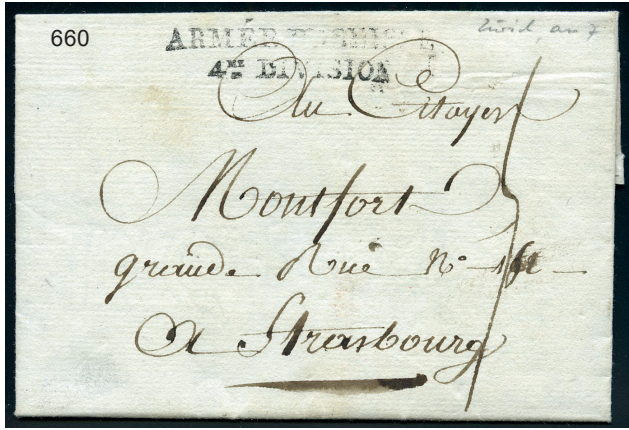 660
ARMÉE
4ME DIVISION
Zürich, an 7
Au Citoyen
Montfort
grande Rue No
a Strasbourg